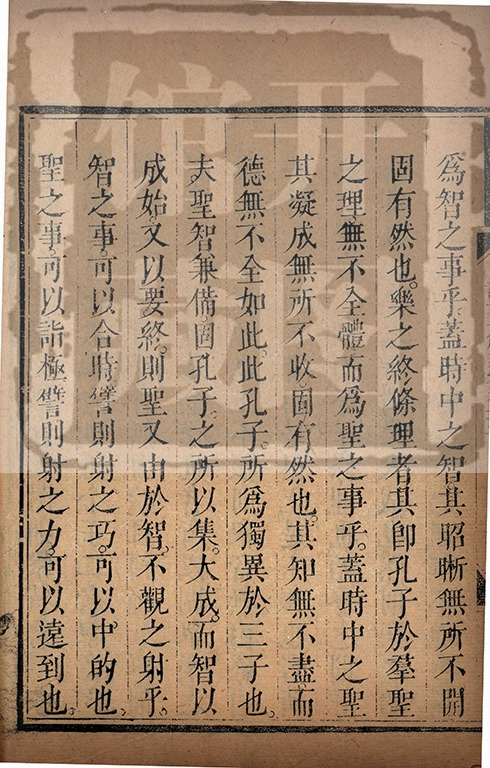 爲智之事乎。蓋時中之智其昭晰無所不開
固有然也。樂之終條理者其卽孔子於羣聖
之理無不全體而爲聖之事乎。蓋時中之聖
其凝成無所不收。固有然也。其知無不盡而
德無不全如此。此孔子所爲獨異於三子也。
夫聖智兼備固孔子之所以集大成。而智以
成始。又以要終。則聖又由於智。不觀之射乎。
智之事。可以合時。譬則射之巧。可以中的也。
聖之事。可以詣極。譬則射之力。可以遠到也。